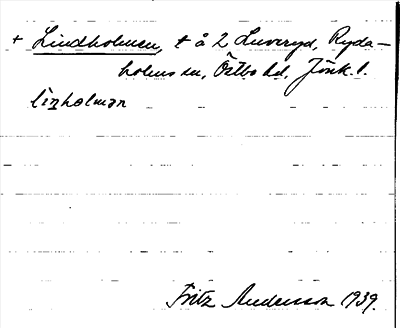 + Lindholmen, t å 2 Luveryd, Ryda-
holms sn, Östbo hd, Jönk. l.
linholman
Fritz Andersson 1939.